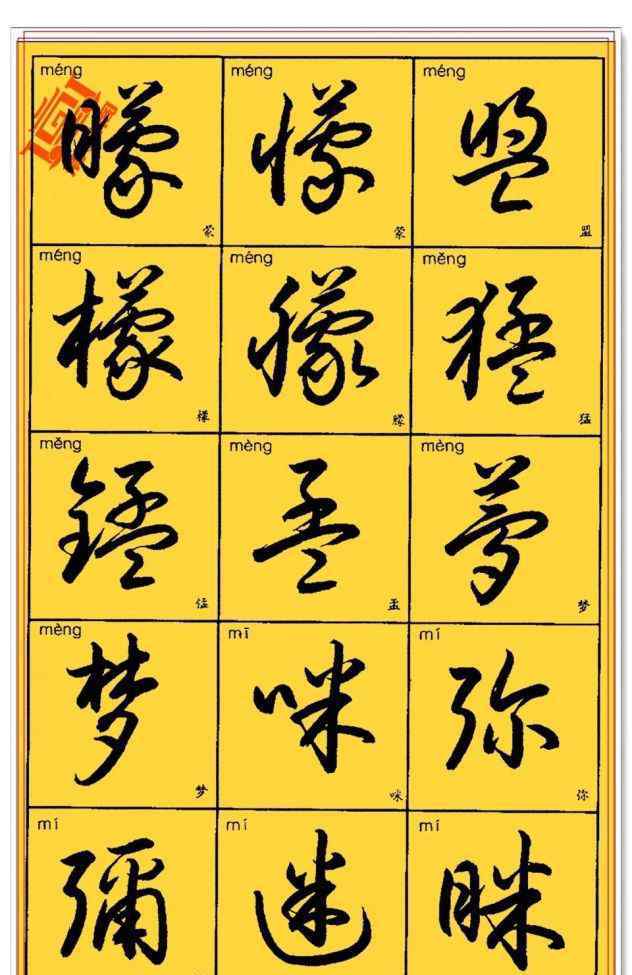 méng méng méng
矇 懞 盟
蒙 蒙 盟
méng méng měng
檬 朦 猛
檬 朦 猛
měng mèng mèng
錳 孟 夢
锰 孟 梦
mèng mī mí
梦 咪 弥
梦 咪 弥
mí mí mí
彌 迷 眯